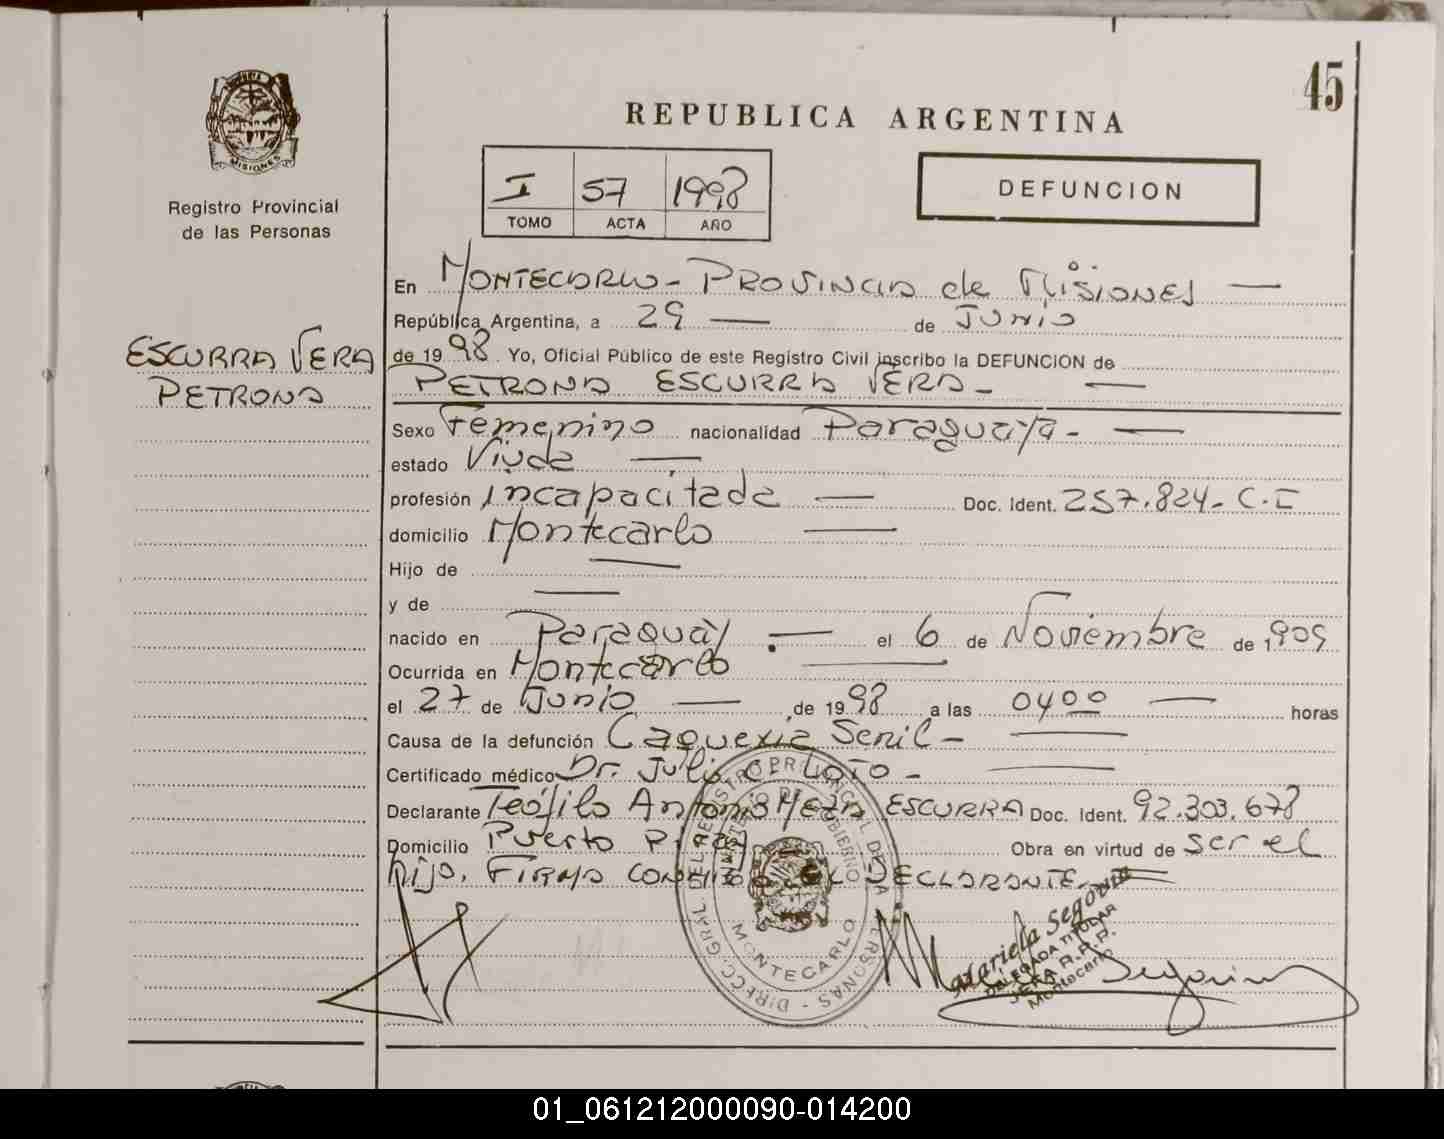 45
REPUBLICA ARGENTINA
MISIONES
Registro Provincial
de las Personas
I 57 1998
TOMO ACTA AÑO
DEFUNCION
ESCURRA VERA
PETRONA
En MONTECARLO - PROVINCIA de MISIONES —
República Argentina, a 29 — de JUNIO
de 1998. Yo, Oficial Público de este Registro Civil inscribo la DEFUNCION de
PETRONA ESCURRA VERA - —
Sexo Femenino nacionalidad Paraguaya - —
estado Viuda —
profesión incapacitada — Doc. Ident. 257.824 - C.I
domicilio Montecarlo —
Hijo de —
y de —
nacido en Paraguay — el 6 de Noviembre de 1909
Ocurrida en Montecarlo —
el 27 de Junio — de 1998 a las 0400 — horas
Causa de la defunción Caquexia Senil - —
Certificado médico Dr. Julio C. Loto - —
Declarante Teófilo Antonio Meza ESCURRA Doc. Ident. 92.303.678
Domicilio Puerto Piray Obra en virtud de ser el
hijo. FIRMA CONMIGO EL DECLARANTE. =
DIRECC. GRAL. DEL REGISTRO PROVINCIAL DE LAS PERSONAS -
MINISTERIO DE GOBIERNO
MONTECARLO
Mariela Segovia
DELEGADA TITULAR
JEFA R.P.P.
Montecarlo
01_061212000090-014200